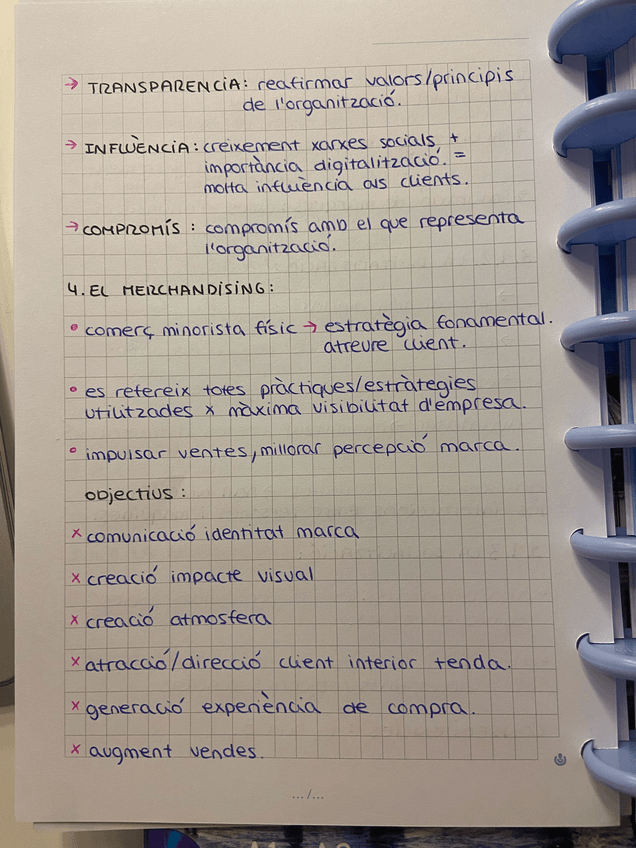 → TRANSPARENCIA: reafirmar valors/principis
de l'organització.
→ INFLUÈNCIA: creixement xarxes socials +
importància digitalització. =
molta influència als clients.
→ COMPROMÍS: compromís amb el que representa
l'organització.
4. EL MERCHANDISING:
• comerç minorista físic → estratègia fonamental.
atreure client.
• es refereix totes pràctiques/estràtegies
utilitzades x màxima visibilitat d'empresa.
• impulsar ventes, millorar percepció marca.
objectius:
x comunicació identitat marca
x creació impacte visual
x creació atmosfera
x atracció/direcció client interior tenda.
x generació experiència de compra.
x augment vendes.
.../...